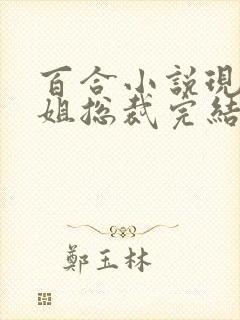 百合小說現
姐总裁完結
鄭玉林